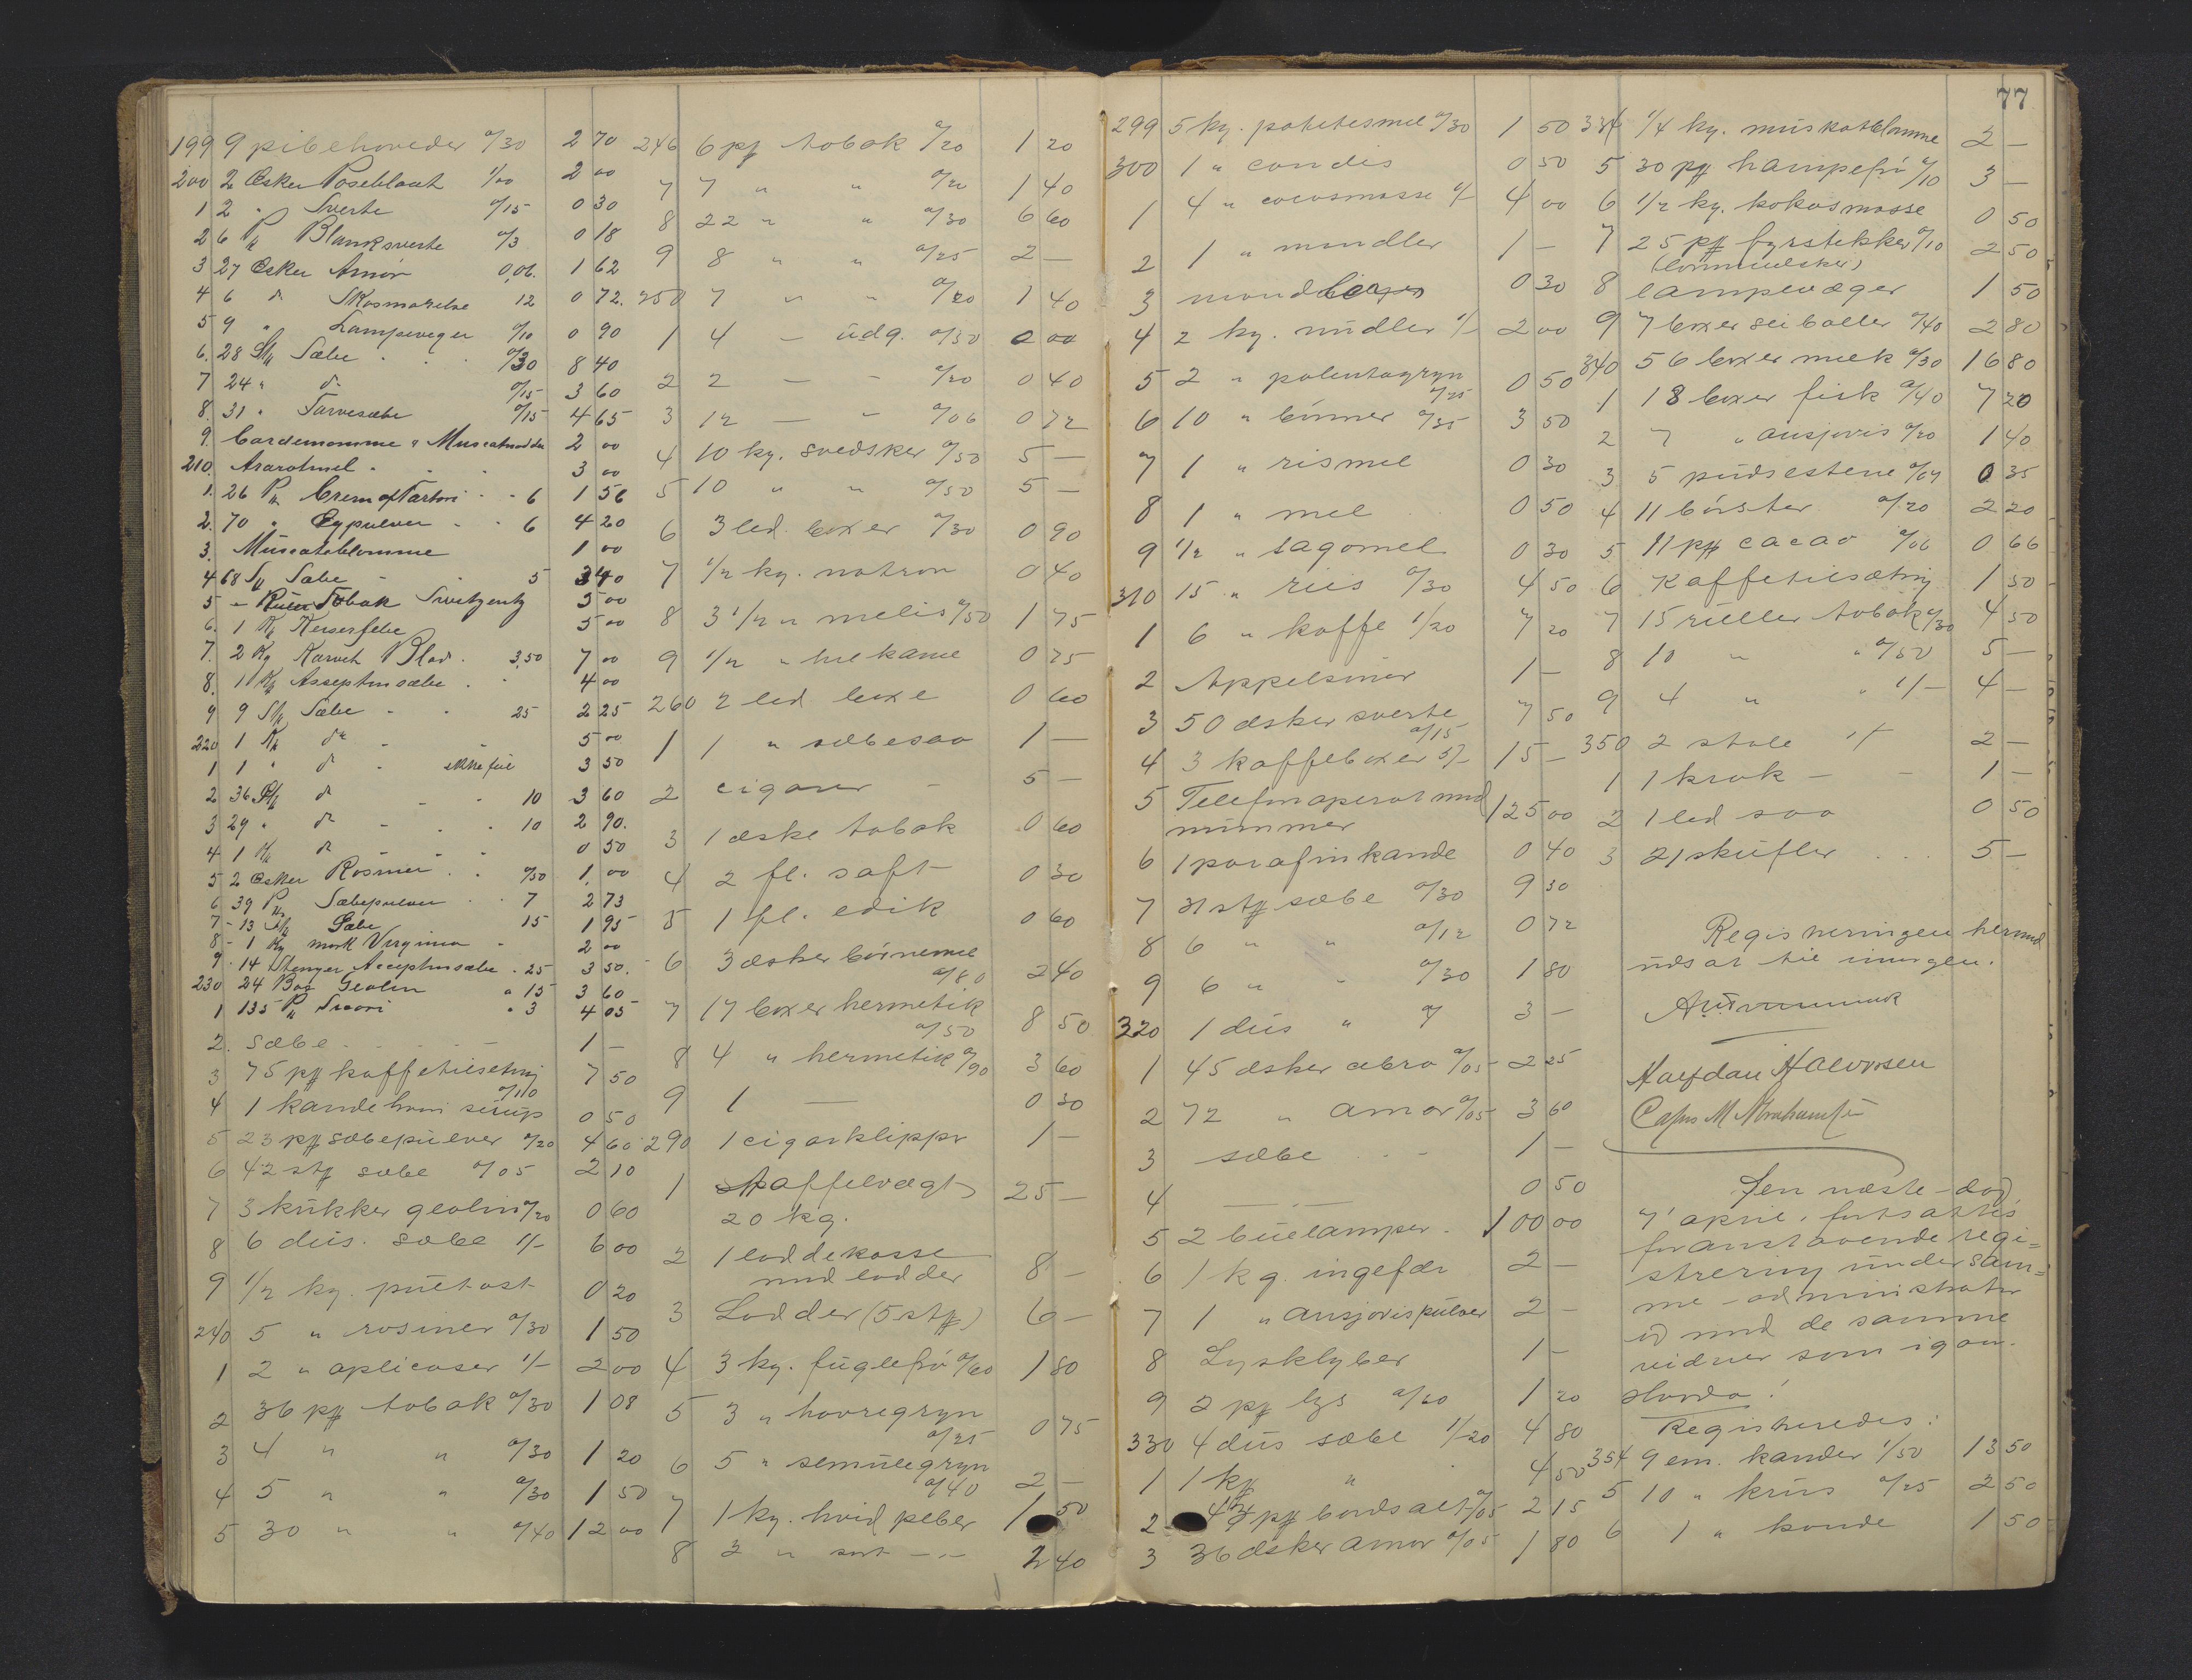 199 9 pibehoveder a/30 2 70
200 2 Æsker Poseblaat 1/00 2 00
1 2 " Sverte a/15 0 30
2 6 Pk Blanksverte a/3 0 18
3 27 Æsker Amor 0,06. 1 62
4 6 do Skosmørelse 12 0 72.
5 9 " Lampeveger a/10 0 90
6. 28 Stk Sæbe a/30 8 40
7 24 " do a/15 3 60
8. 31 " Tarvesæbe a/15 4 65
9. Cardemomme & Muscatnødder 2 00
210. Ararotmel 3 00
1. 26 Pk Crem of Tartari 6 1 56
2. 70 " Egpulver 6 4 20
3. Muscateblomme 1 00
4 68 St Sæbe 5 3 40
5 - Ruller Tobak 5 00
6. 1 Ks Keisersæbe 5 00
7. 2 Kg Karvet Blad. 3,50 7 00
8. 1 Ks Asseptinsæbe 4 00
9 9 Stk Sæbe 25 2 25
220 1 Ks do 5 00
1 1 " do ikke ful 3 50
2 36 Stk do 10 3 60
3 29 " do 10 2 90.
4 1 Ks do 0 50
5 2 Æsker Rosiner a/50 1,00
6 39 Pk Sæbepulver 7 2 73
7 - 13 Stk Sæbe 15 1 95
8 - 1 Kg mørk Virginia 2 00
9 - 14 Stenger Aceptinsæbe . 25 3 50.
230 24 Box Geolin a 15 3 60
1 135 Pk Svovri " 3 4 05
2. Sæbe 1 —
3 75 pk kaffetilsetning a/10 7 50
4 1 kande hvori sirup 0 50
5 23 pk sæbepulver a/20 4 60
6 42 stk sæbe a/05 2 10
7 3 krukker geolin a/20 0 60
8 6 dus. sæbe 1/- 6 00
9 1/2 kg. pultost 0 20
240 5 " rosiner a/30 1 50
1 2 " aplicoser 1/- 2 00
2 36 pk tobak a/30 1 08
3 4 " " a/30 1 20
4 5 " " a/30 1 50
5 30 " " a/40 12 00
246 6 pk tobak a/20 1 20
7 7 " " a/20 1 40
8 22 " " a/30 6 60
9 8 " " a/25 2 —
250 7 " " a/20 1 40
1 4 — udg. a/50 2 00
2 2 — - a/20 0 40
3 12 — - a/06 0 72
4 10 kg. svedsker a/50 5 —
5 10 " " a/50 5 —
6 3 led. boxer a/30 0 90
7 1/2 kg. natron 0 40
8 3 1/2 " melis a/50 1 75
9 1/2 " hel kanel 0 75
260 2 led boxe 0 60
1 1 " sæbesaa 1 —
2 cigarer 5 —
3 1 æske tobak 0 60
4 2 fl. saft 0 30
5 1 fl. edik 0 60
6 3 æsker børnemel a/80 2 40
7 17 boxer hermetik a/50 8 50
8 4 " hermetik a/90 3 60
9 1 — 0 30
290 1 cigarklipper 1 —
1 skaffelvægt 25 —
20 kg.
2 1 loddekasse
med lodder 8 —
3 Lodder (5 stk) 6 —
4 3 kg. fuglefrø a/60 1 80
5 3 " havregryn a/25 0 75
6 5 " semulegryn a/40 2 —
7 1 kg. hvid peber 1 50
8 2 " sort — 2 40
77
299 5 kg. potetesmel a/30 1 50
300 1 " candis 0 50
1 4 " cocosmasse 1/- 4 00
2 1 " mandler 1 —
3 0 30
4 2 kg. nudler 1/- 2 00
5 2 " polentagryn a/25 0 50
6 10 " bønner a/35 3 50
7 1 " rismel 0 30
8 1 " mel 0 50
9 1/2 " sagomel 0 30
310 15 " riis a/30 4 50
1 6 " kaffe 1/20 7 20
2 Appelsiner 1 —
3 50 æsker sverte a/15 7 50
4 3 kaffeboxer 5/- 15 —
5 Telefonaperat med
nummer 125 00
6 1 parafinkande 0 40
7 31 stk sæbe a/30 9 30
8 6 " " a/12 0 72
9 6 " " a/30 1 80
320 1 dus " a 3 —
1 45 æsker æbro a/05 2 25
2 72 " amor a/05 3 60
3 sæbe 1 —
4 — 0 50
5 2 buelamper 100 00
6 1 kg. ingefær 2 —
7 1 " ansjovispulver 2 —
8 Lysklyber 1 —
9 2 pk lys a/60 1 20
330 4 dus sæbe 1/20 4 80
1 1 kg " 4 50
2 43 pk bordsalt a/05 2 15
3 36 æsker amor a/05 1 80
334 1/4 kg. muskatblomme 2 —
5 30 pk hampefrø a/10 3 —
6 1/2 kg. kokosmasse 0 50
7 25 pk fyrstekker a/10 2 50
(lommeæsker)
8 lampevæger 1 50
9 7 boxer seiboller a/40 2 80
340 56 boxer melk a/30 16 80
1 18 boxer fisk a/40 7 20
2 7 " ansjovis a/20 1 40
3 5 pudsestene a/07 0 35
4 11 børster a/20 2 20
5 11 pk cacao a/06 0 66
6 Kaffetilsætning 1 50
7 15 ruller tobak a/30 4 50
8 10 " " a/50 5 —
9 4 " " 1/- 4 —
350 2 stole 1/- 2 —
1 1 krak 1 —
2 1 led saa 0 50
3 21 skufler 5 —
Registreringen hermed
udsat til imorgen.
Halfdan Halvorsen
Casp. M Abrahamsen
Den næste dag
7' april, fortsattes
foranstaaende regi=
strering under sam=
me administrator
og med de samme
vidner som igaar.
Hvorda!
Registreredes:
354 9 em. kander 1/50 13 50
5 10 " krus a/25 2 50
6 1 " kande 1 50